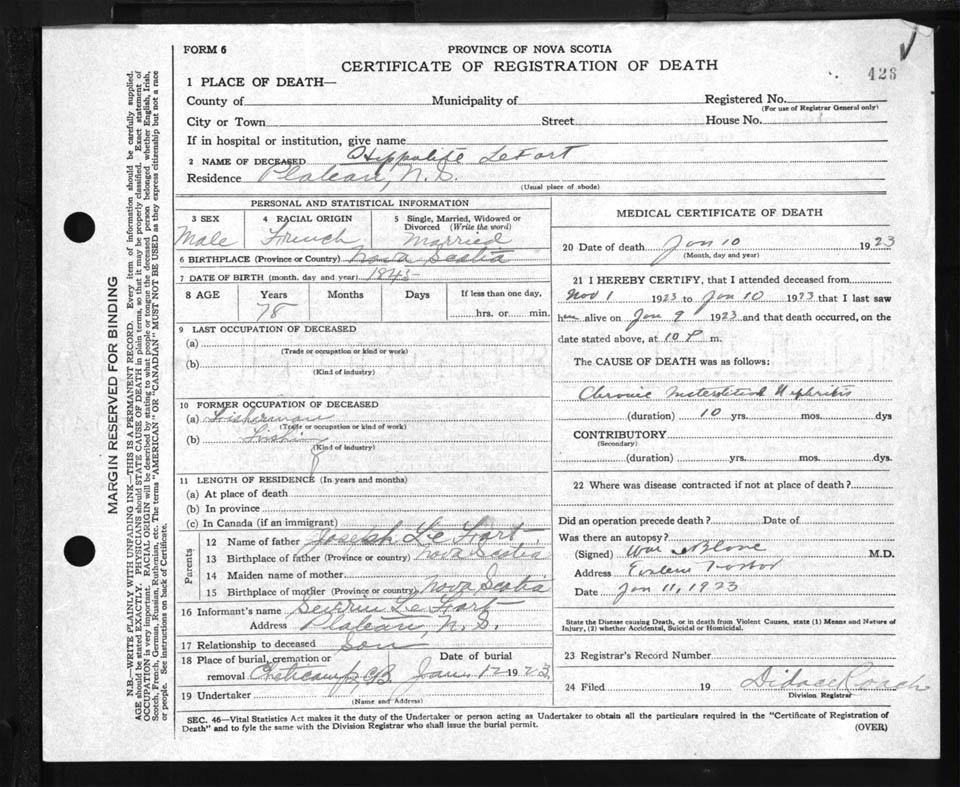 FORM 6
PROVINCE OF NOVA SCOTIA
CERTIFICATE OF REGISTRATION OF DEATH
426
1 PLACE OF DEATH—
County of Municipality of Registered No.
(For use of Registrar General only)
City or Town Street House No.
If in hospital or institution, give name
2 NAME OF DECEASED Hippolite LeFort
Residence Plateau, N.S.
(Usual place of abode)
PERSONAL AND STATISTICAL INFORMATION
3 SEX 4 RACIAL ORIGIN 5 Single, Married, Widowed or Divorced (Write the word)
Male French Married
6 BIRTHPLACE (Province or Country) Nova Scotia
7 DATE OF BIRTH (month, day and year) 1845
8 AGE Years Months Days If less than one day,
78 hrs. or min.
9 LAST OCCUPATION OF DECEASED
(a)
(Trade or occupation or kind or work)
(b)
(Kind of industry)
10 FORMER OCCUPATION OF DECEASED
(a) Fisherman
(Trade or occupation or kind of work)
(b) Fishing
(Kind of industry)
11 LENGTH OF RESIDENCE (In years and months)
(a) At place of death
(b) In province
(c) In Canada (if an immigrant)
Parents
12 Name of father Joseph Le Fort
13 Birthplace of father (Province or country) Nova Scotia
14 Maiden name of mother
15 Birthplace of mother (Province or country) Nova Scotia
16 Informant's name Severin Le Fort
Address Plateau, N.S.
17 Relationship to deceased Son
18 Place of burial, cremation or removal Cheticamp, C.B. Date of burial Jan. 12 1923
19 Undertaker
(Name and Address)
MEDICAL CERTIFICATE OF DEATH
20 Date of death Jan 10 1923
(Month, day and year)
21 I HEREBY CERTIFY, that I attended deceased from
Nov 1 1923 to Jan 10 1923 that I last saw
him alive on Jan 9 1923 and that death occurred, on the
date stated above, at 10 P m.
The CAUSE OF DEATH was as follows:
Chronic Interstitial Nephritis
(duration) 10 yrs. mos. dys
CONTRIBUTORY
(Secondary)
(duration) yrs. mos. dys.
22 Where was disease contracted if not at place of death?
Did an operation precede death? Date of
Was there an autopsy?
(Signed) M.D.
Address Harbor
Date Jan 11, 1923
State the Disease causing Death, or in death from Violent Causes, state (1) Means and Nature of
Injury, (2) whether Accidental, Suicidal or Homicidal.
23 Registrar's Record Number
24 Filed 19 Didace Roach
Division Registrar
SEC. 46—Vital Statistics Act makes it the duty of the Undertaker or person acting as Undertaker to obtain all the particulars required in the "Certificate of Registration of
Death" and to fyle the same with the Division Registrar who shall issue the burial permit.
(OVER)
MARGIN RESERVED FOR BINDING
N.B.—WRITE PLAINLY WITH UNFADING INK—THIS IS A PERMANENT RECORD. Every item of information should be carefully supplied.
AGE should be stated EXACTLY. PHYSICIANS should STATE CAUSE OF DEATH in plain terms, so that it may be properly classified. Exact statement of
OCCUPATION is very important. RACIAL ORIGIN will be described by stating to what people or tongue the deceased person belonged whether English, Irish,
Scotch, French, German, Russian, Ruthenian, etc. The terms "AMERICAN" OR "CANADIAN" MUST NOT BE USED as they express citizenship but not a race
or people. See instructions on back of Certificate.